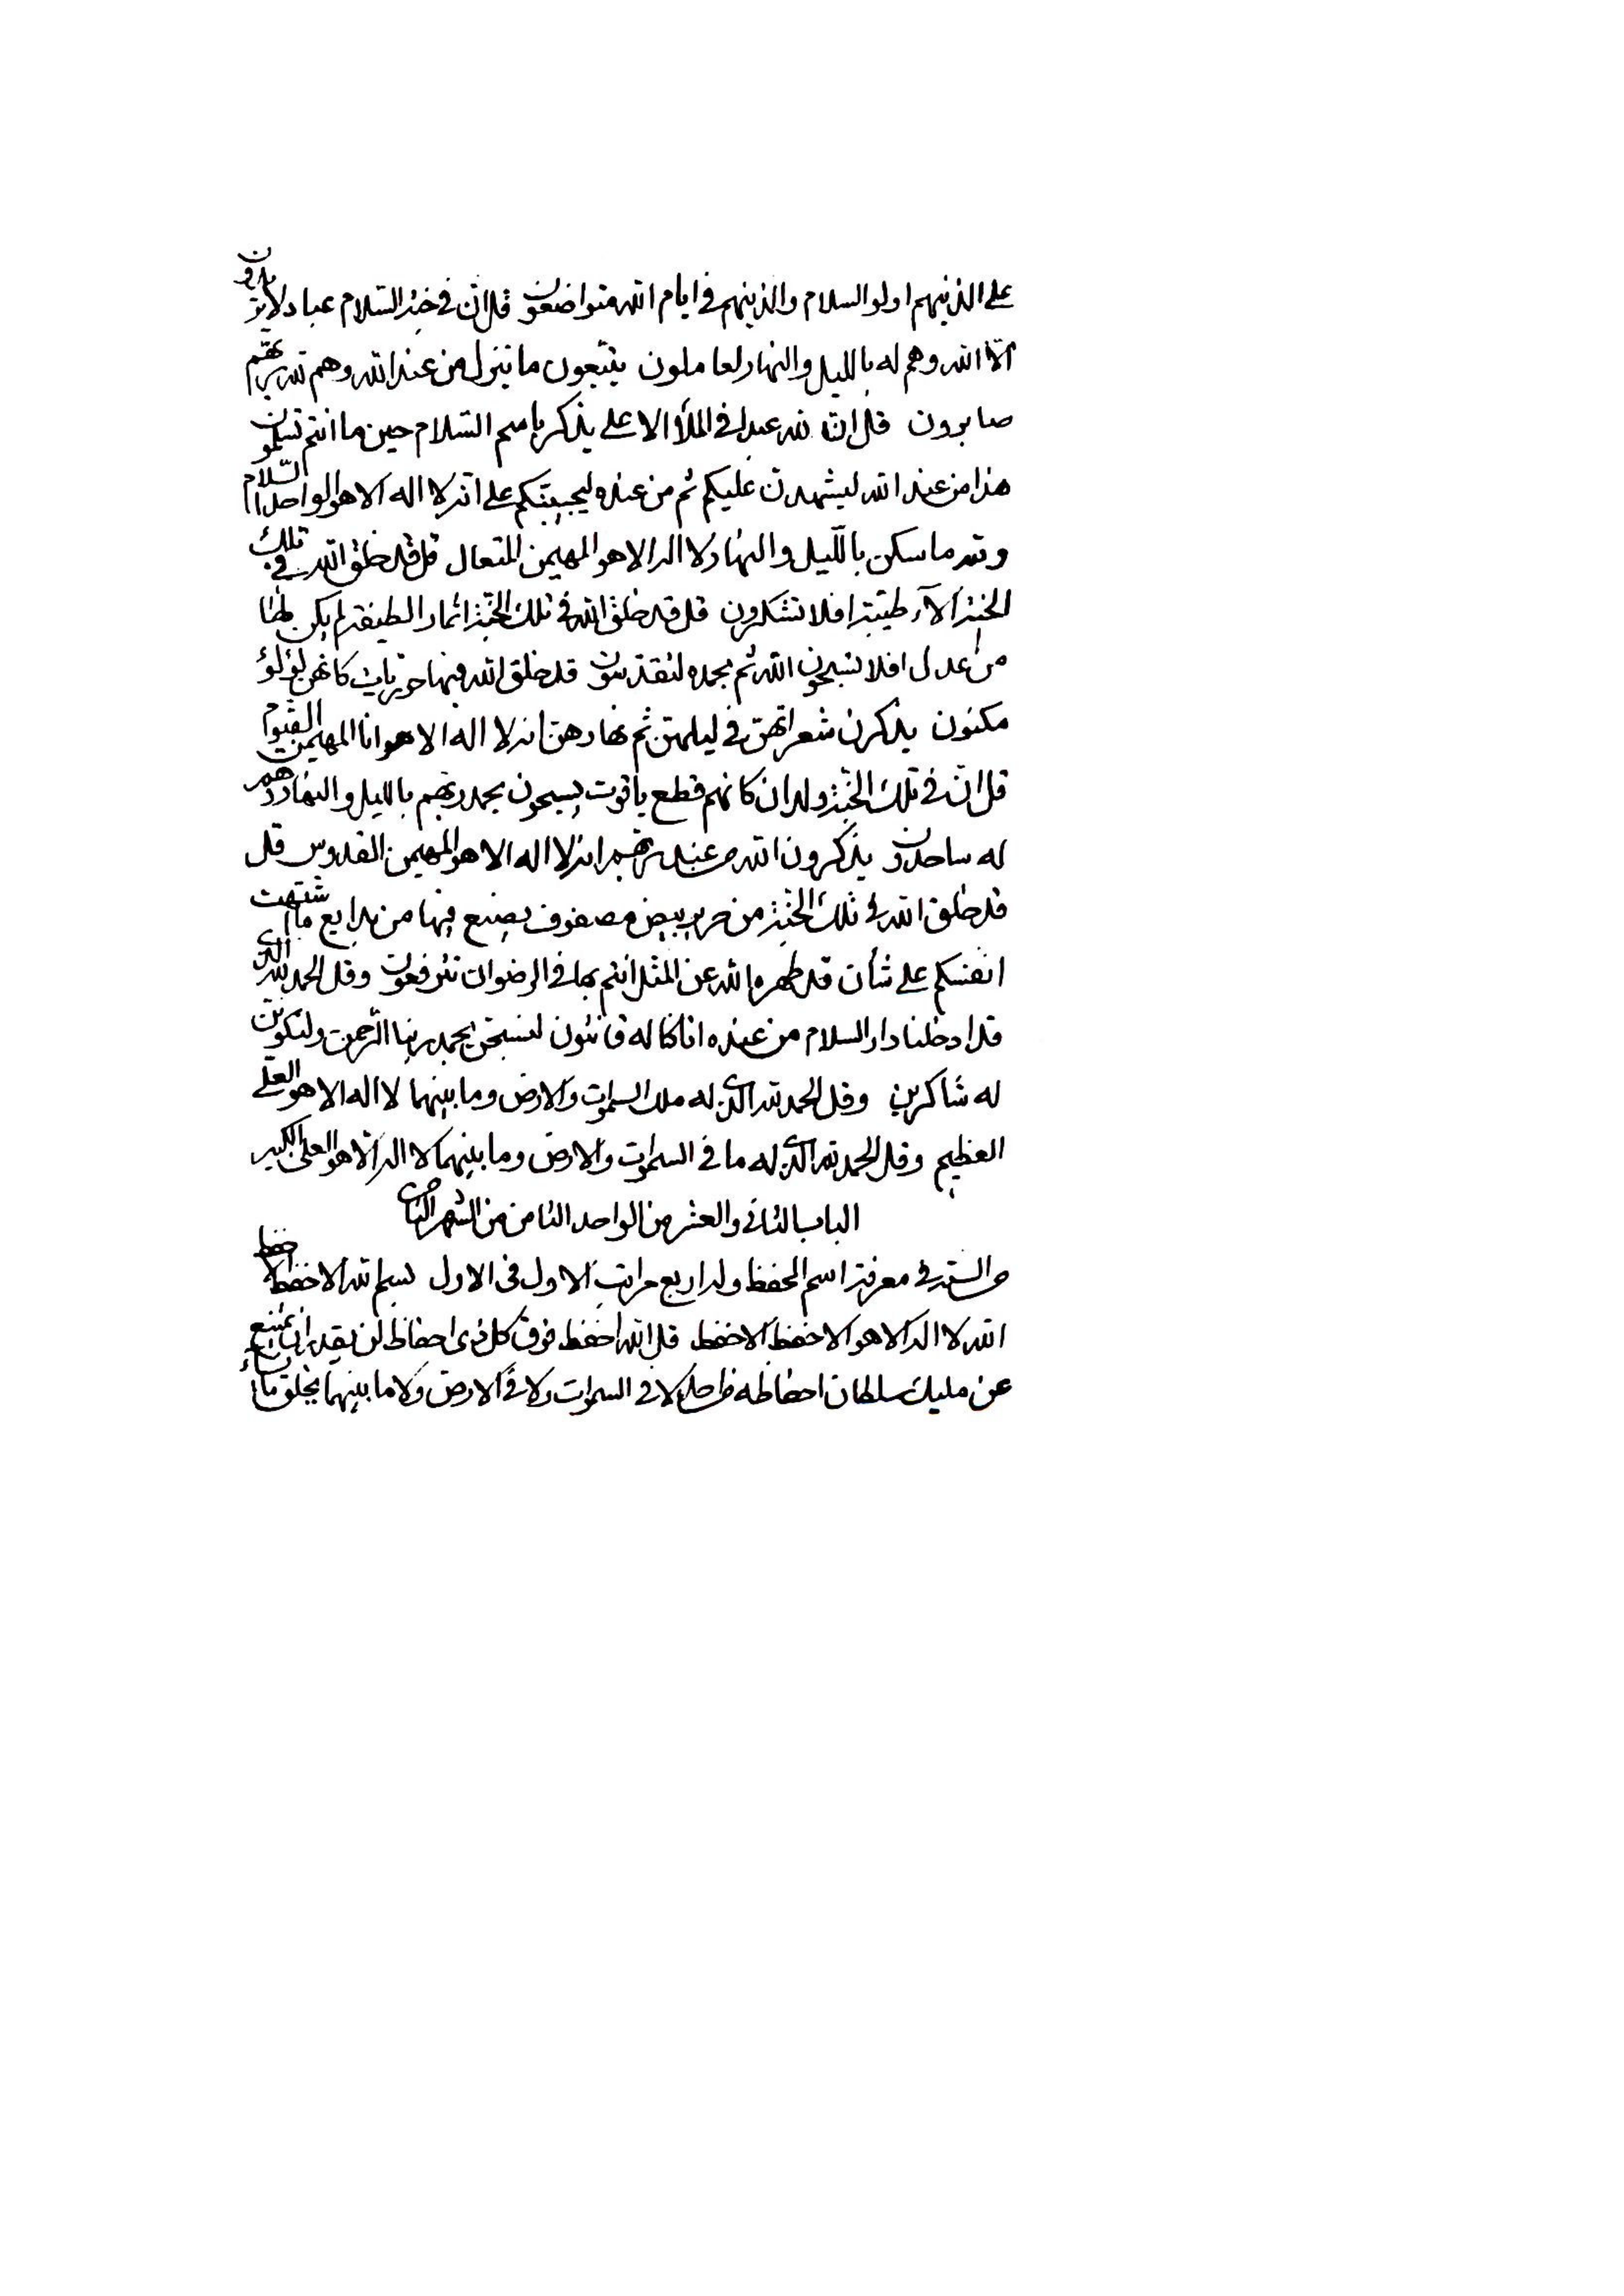 على الذينهم اولو السلام والذينهم فى ايام الله متواضعون قل ان فى جنة السلام عباد لا يريدون
الا الله وهم له بالليل والنهار لعاملون يتبعون ما ينزل من عند الله وهم لله ربهم
صابرون قل ان لله عبدا فى الملأ الاعلى يذكر باسم السلام حين ما انتم تسلمون
هذا من عند الله ليشهدن عليكم ثم من عنده ليجيبنكم على انه لا اله الا هو الواحد السلام
ولله ما سكن بالليل والنهار لا اله الا هو المهيمن المتعال قل قد خلق الله فى تلك
الجنة آلآء طيبة افلا تشكرون قل قد خلق الله فى تلك الجنة اثمار الطيفة لم يكن لها
من عدل افلا تسبحون الله ثم بحمده لتقدسون قد خلق الله فيها حوريات كانهن لؤلؤ
مكنون يذكرن شعراتهن فى ليلهن ثم نهارهن انه لا اله الا هو انا المهيمن القيوم
قل ان فى تلك الجنة ولدان كانهم قطع ياقوت يسبحون بحمد ربهم بالليل والنهار وهم
له ساجدون يذكرون الله من عند ربهم انه لا اله الا هو المهيمن القدوس قل
قد خلق الله فى تلك الجنة من حرير بيض مصفوف يصنع فيها من بدايع ما اشتهت
انفسكم على شأن قد طهره الله عن المثل انتم بها فى الرضوان تترفعون وقل الحمد لله الذى
قد ادخلنا دار السلام من عنده انا كنا له قانتون لنسبحن بحمد ربنا الرحمن ولنكونن
له شاكرين وقل الحمد لله الذى له ملك السموات والارض وما بينهما لا اله الا هو العلى
العظيم وقل الحمد لله الذى له ما فى السموات والارض وما بينهما لا اله الا هو العلى الكبير
الباب الثانى والعشر من الواحد الثامن من الشهر
فى معرفة اسم الحفظ وله اربع مراتب الاول فى الاول بسم الله الاحفظ الاحفظ
الله لا اله الا هو الاحفظ الاحفظ قل الله احفظ فوق كل ذى احفاظ لن يقدر ان يمتنع
عن مليك سلطان احفاظه من احد لا فى السموات ولا فى الارض ولا ما بينهما يخلق ما يشاء